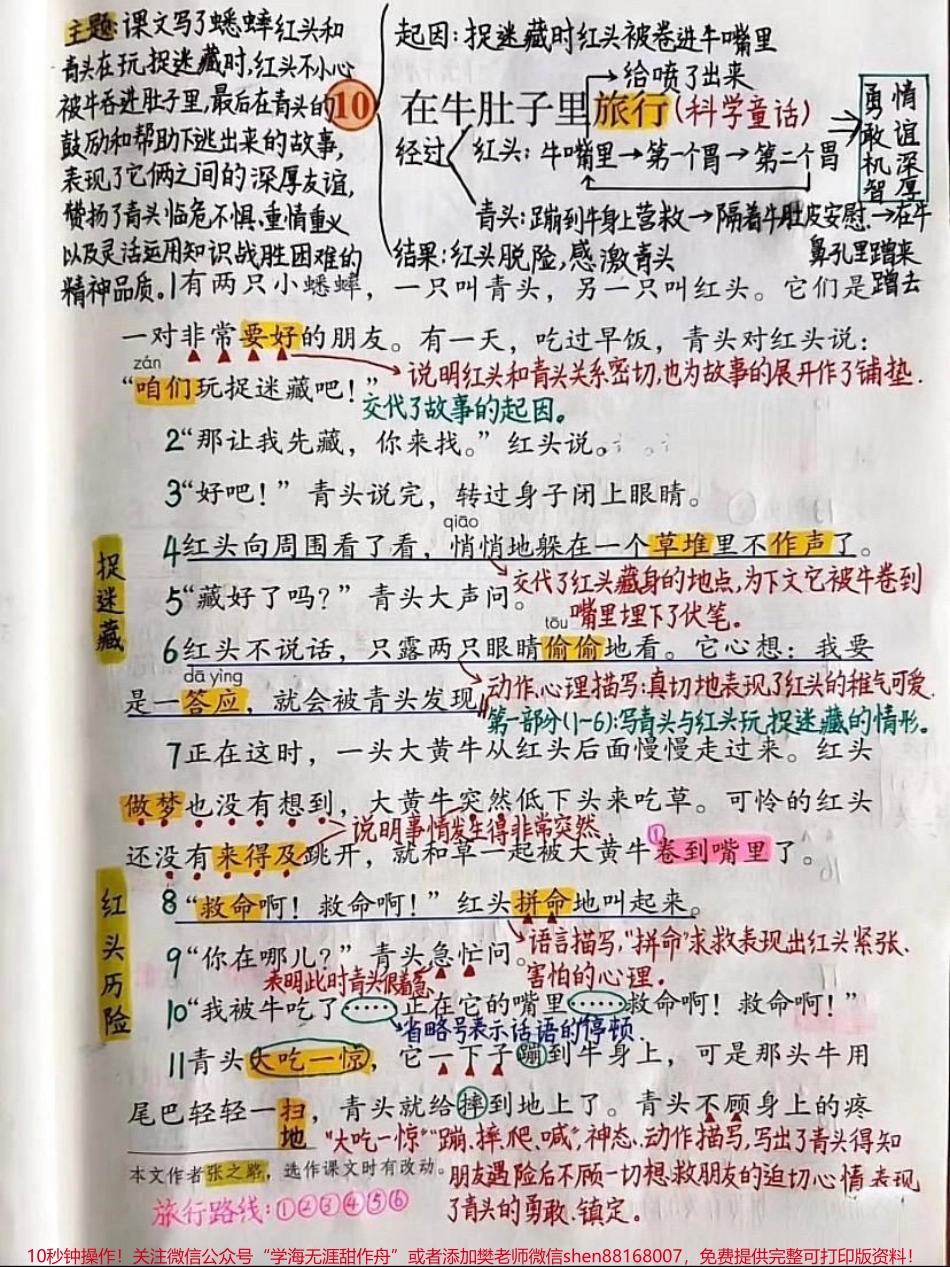 主题:课文写了蟋蟀红头和
青头在玩捉迷藏时,红头不小心
被牛吞进肚子里,最后在青头的
鼓励和帮助下逃出来的故事,
表现了它俩之间的深厚友谊,
赞扬了青头临危不惧、重情重义
以及灵活运用知识战胜困难的
精神品质。
起因:捉迷藏时红头被卷进牛嘴里
给喷了出来
10 在牛肚子里旅行(科学童话)
经过
红头:牛嘴里→第一个胃→第二个胃
青头:蹦到牛身上营救→隔着牛肚皮安慰.→在牛
鼻孔里蹭来
蹭去
结果:红头脱险,感激青头
勇敢机智
情谊深厚
1有两只小蟋蟀，一只叫青头，另一只叫红头。它们是
一对非常要好的朋友。有一天，吃过早饭，青头对红头说：
说明红头和青头关系密切,也为故事的展开作了铺垫.
zán
“咱们玩捉迷藏吧！”
交代了故事的起因。
2“那让我先藏，你来找。”红头说。
3“好吧！”青头说完，转过身子闭上眼睛。
qiāo
4红头向周围看了看，悄悄地躲在一个草堆里不作声了。
交代了红头藏身的地点,为下文它被牛卷到
嘴里埋下了伏笔。
5“藏好了吗？”青头大声问。
tōu
6红头不说话，只露两只眼睛偷偷地看。它心想：我要
dā ying
是一答应，就会被青头发现
动作、心理描写:真切地表现了红头的稚气可爱.
第一部分(1~6):写青头与红头玩捉迷藏的情形。
捉迷藏
7正在这时，一头大黄牛从红头后面慢慢走过来。红头
做梦也没有想到，大黄牛突然低下头来吃草。可怜的红头
说明事情发生得非常突然.
①
还没有来得及跳开，就和草一起被大黄牛卷到嘴里了。
红头历险
8“救命啊！救命啊！”红头拼命地叫起来。
语言描写,“拼命”求救表现出红头紧张、
害怕的心理.
9“你在哪儿？”青头急忙问。
表明此时青头很着急
10“我被牛吃了……正在它的嘴里……救命啊！救命啊！”
省略号表示话语的停顿.
11青头大吃一惊，它一下子蹦到牛身上，可是那头牛用
尾巴轻轻一扫，青头就给摔到地上了。青头不顾身上的疼
地
“大吃一惊”“蹦、摔、爬、喊”,神态、动作描写,写出了青头得知
朋友遇险后不顾一切想救朋友的迫切心情,表现
了青头的勇敢、镇定.
本文作者张之路，选作课文时有改动。
旅行路线:①②③④⑤⑥
10秒钟操作！关注微信公众号“学海无涯甜作舟”或者添加樊老师微信shen88168007，免费提供完整可打印版资料！